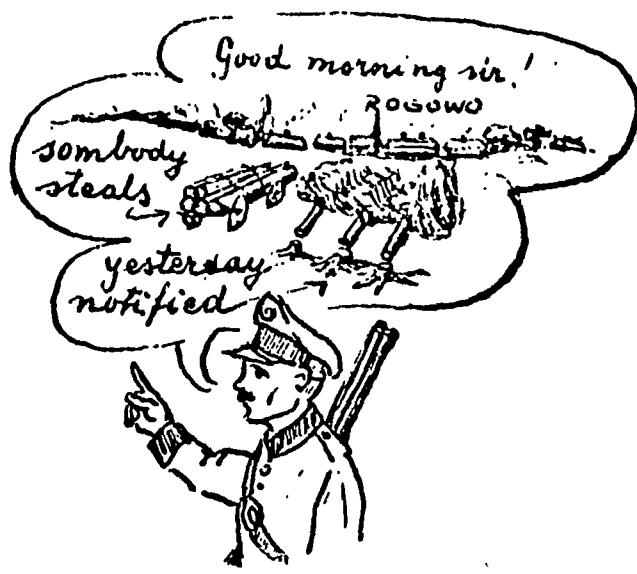 Good morning sir!
ROGOWO
sombody
steals
yesterday
notified